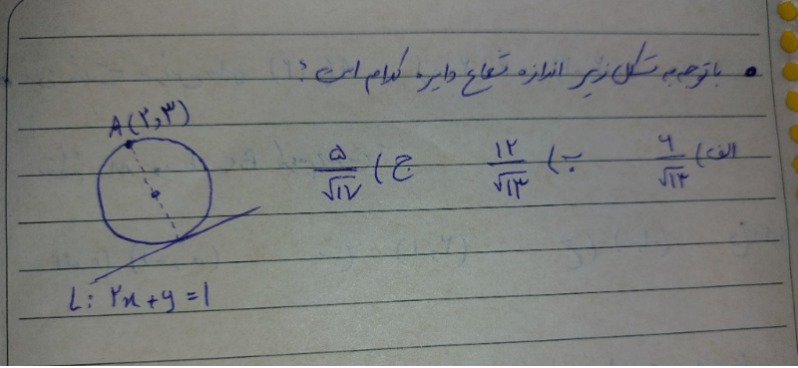 • باتوجه به شکل زیر اندازه شعاع دایره کدام است؟
الف) ۶/√۱۳ ب) ۱۲/√۱۳ ج) ۵/√۱۷
A(۲,۳)
L: ۲x+y=۱